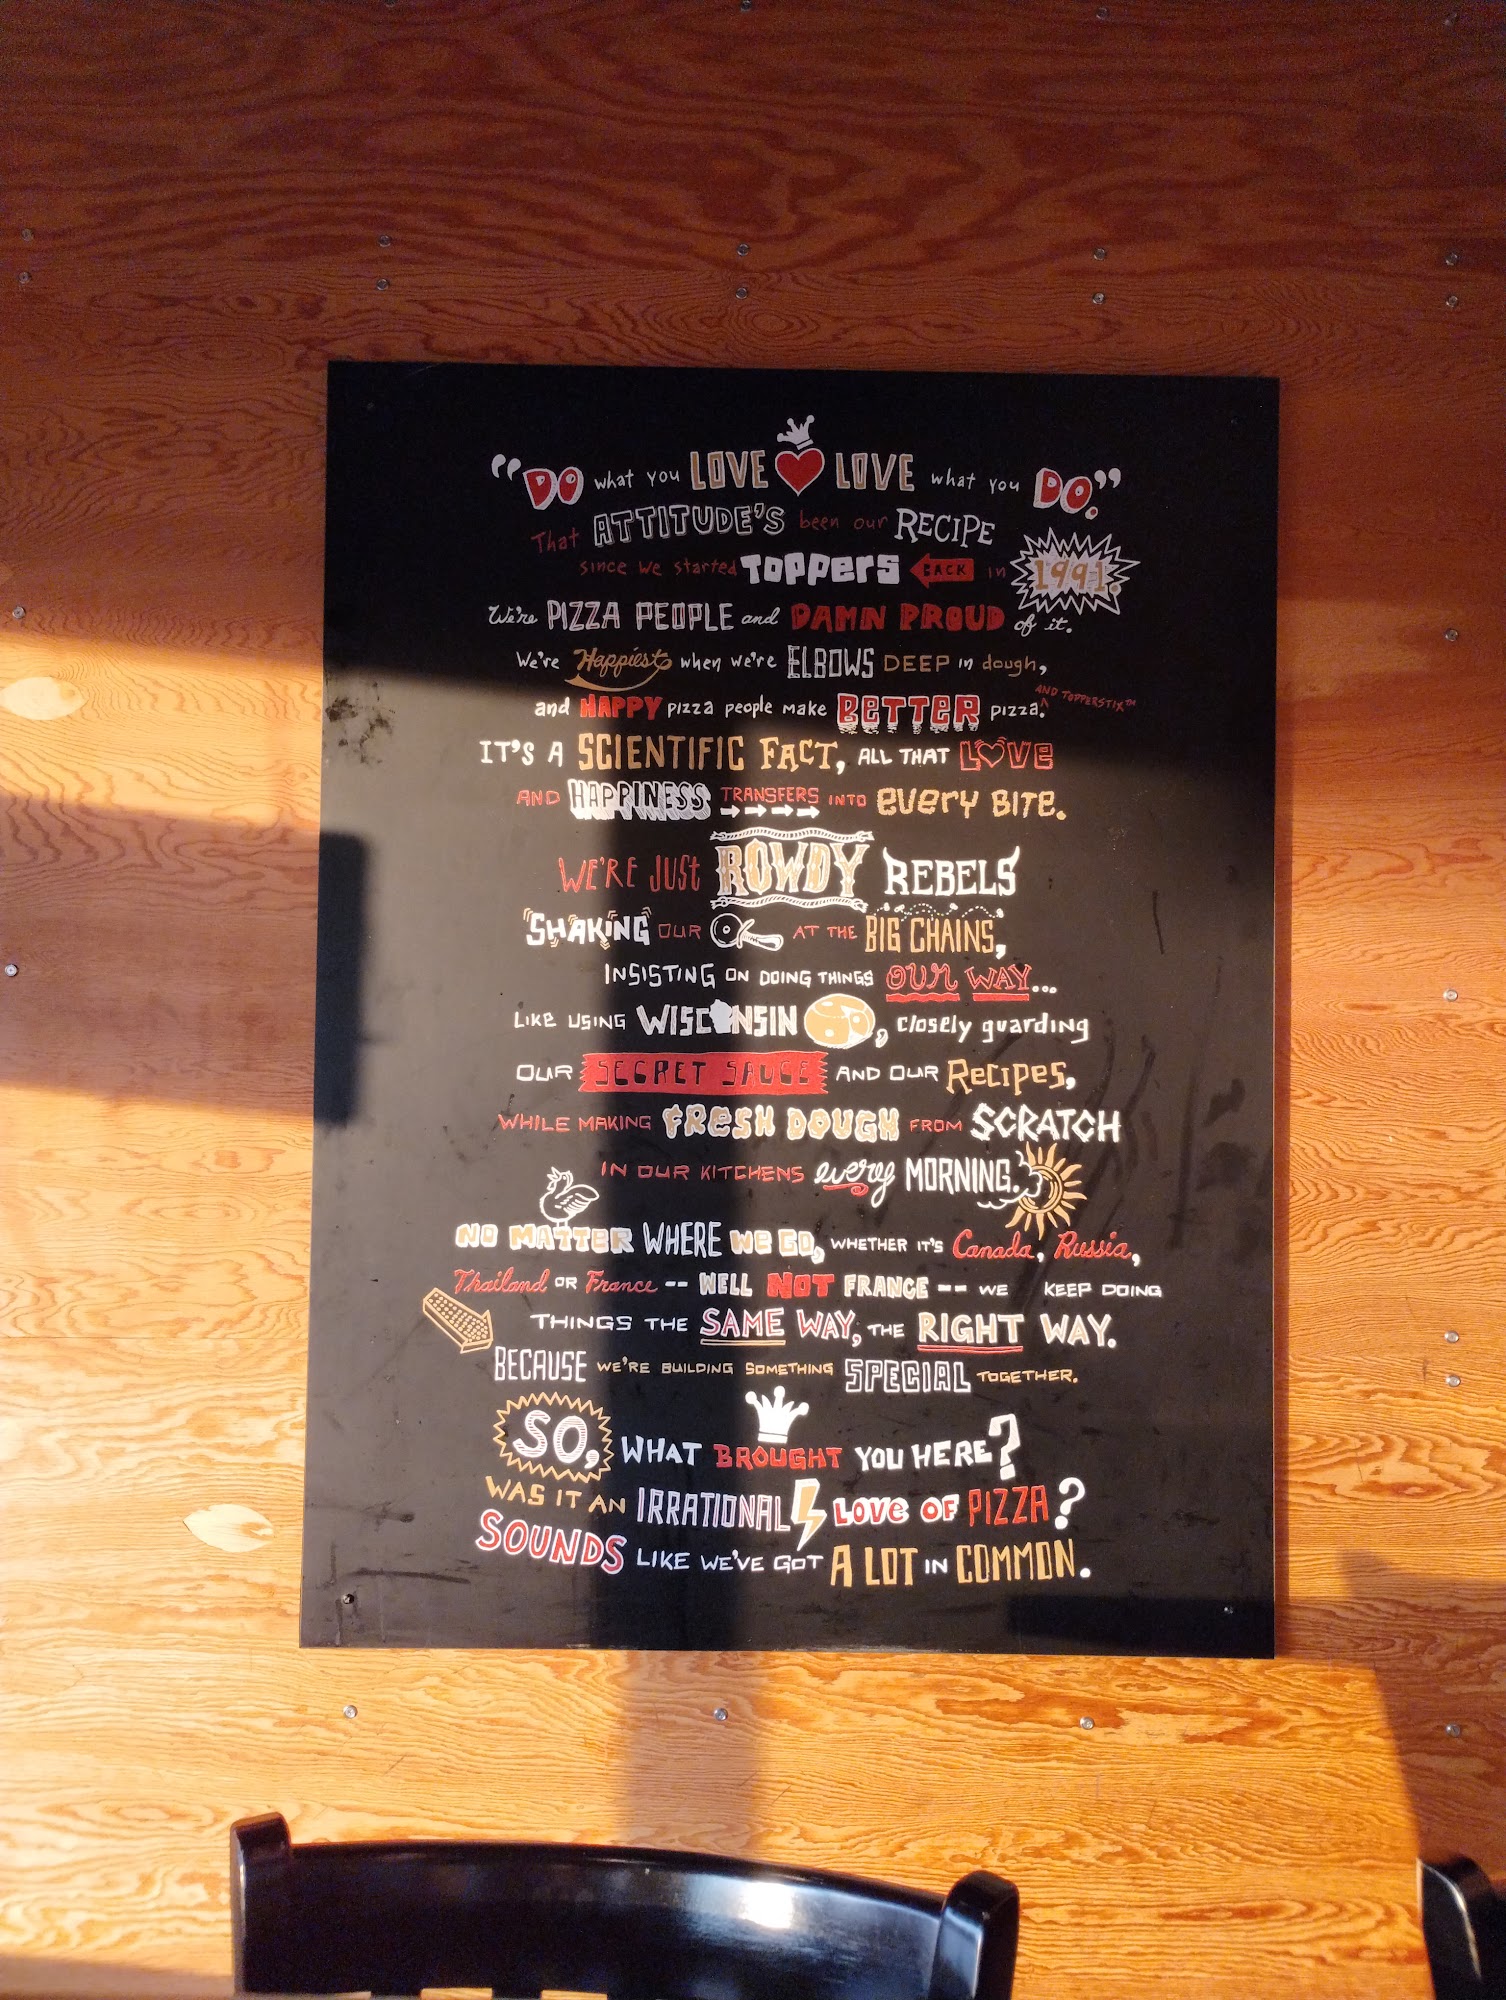 “DO what you LOVE LOVE what you DO.”
That ATTITUDE'S been our RECIPE
since we started TOPPERS BACK in 1991.
We're PIZZA PEOPLE and DAMN PROUD of it.
We're Happiest when we're ELBOWS DEEP in dough,
AND TOPPERSTIX™
and HAPPY pizza people make BETTER pizza.^
IT'S A SCIENTIFIC FACT, ALL THAT LOVE
AND HAPPINESS TRANSFERS INTO EVERY BITE.
WE'RE JUST ROWDY REBELS
SHAKING OUR AT THE BIG CHAINS,
INSISTING ON DOING THINGS OUR WAY...
LIKE USING WISCONSIN , closely guarding
OUR SECRET SAUCE AND OUR Recipes,
WHILE MAKING FRESH DOUGH FROM SCRATCH
IN OUR KITCHENS every MORNING.
NO MATTER WHERE WE GO, WHETHER IT'S Canada, Russia,
Thailand OR France -- WELL NOT FRANCE -- WE KEEP DOING
THINGS THE SAME WAY, THE RIGHT WAY.
BECAUSE WE'RE BUILDING SOMETHING SPECIAL TOGETHER.
SO, WHAT BROUGHT YOU HERE?
WAS IT AN IRRATIONAL LOVE OF PIZZA?
SOUNDS LIKE WE'VE GOT A LOT IN COMMON.